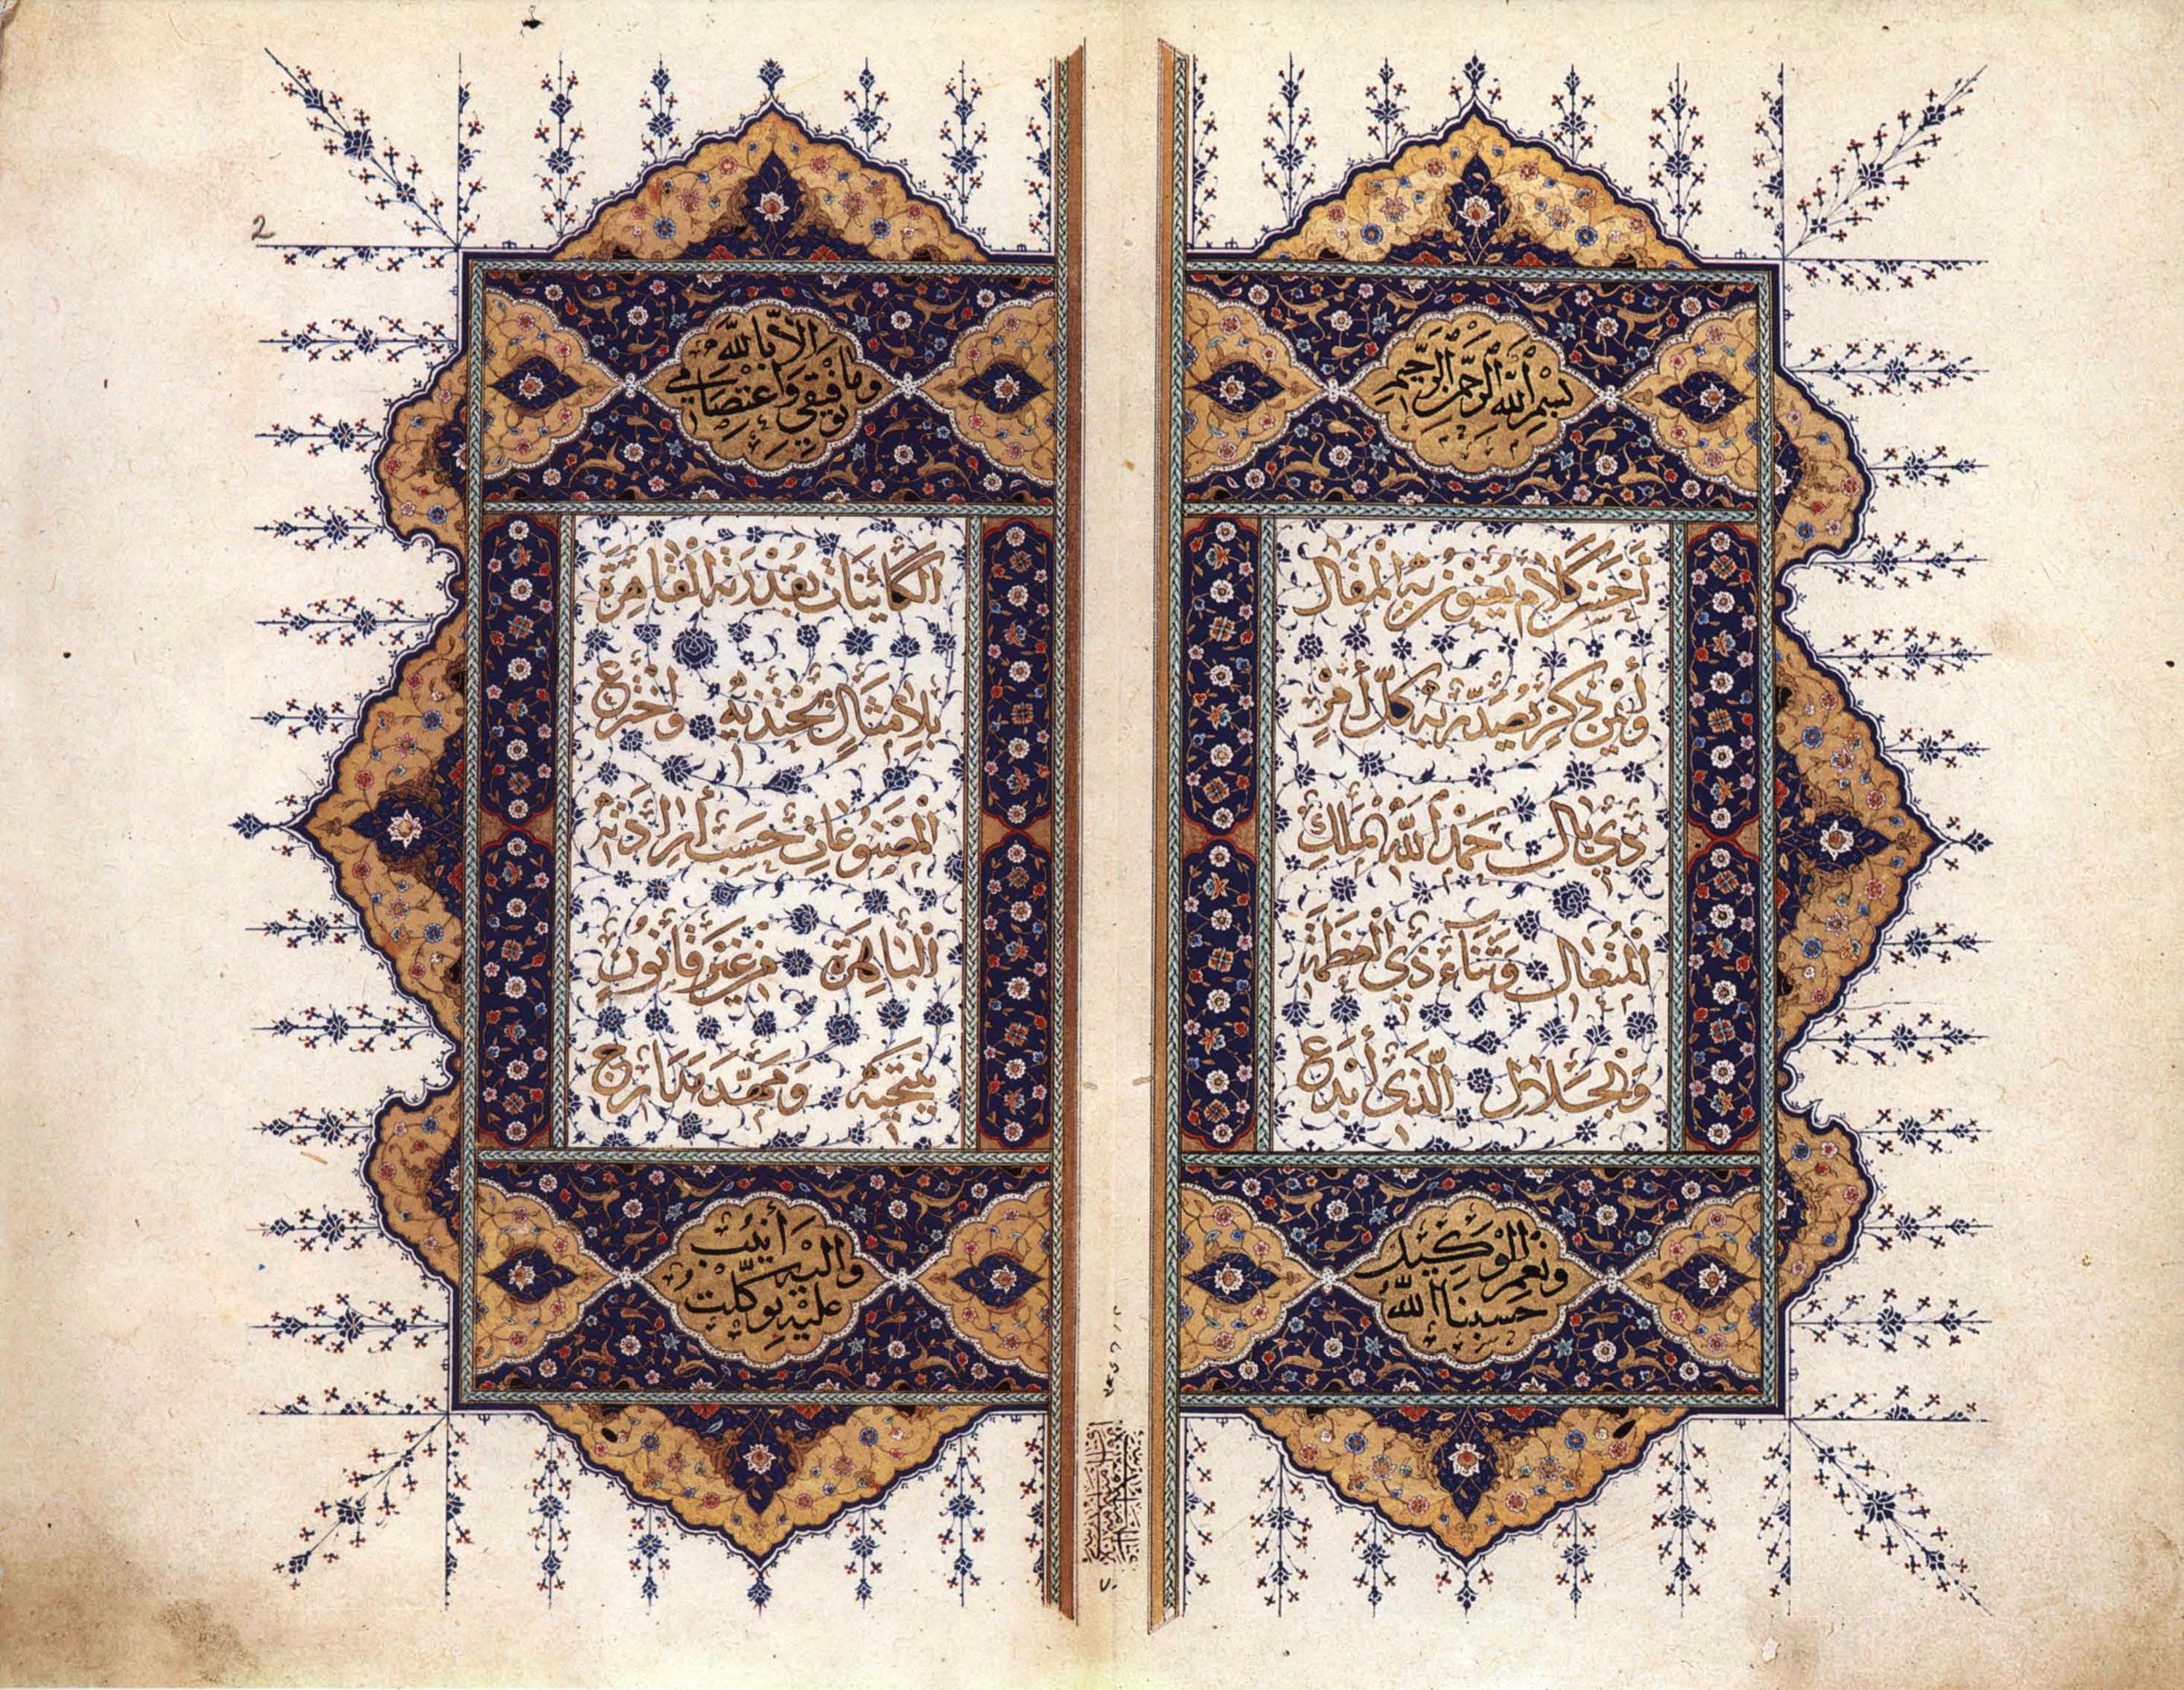 بِسْمِ اللّٰهِ الرَّحْمٰنِ الرَّحِيمِ
أَحْسَنُ كَلَامٍ يُفُوزُ بِهِ الْمَقَالُ
وَأَيْمَنُ ذِكْرٍ يُصَدَّرُ بِهِ كُلُّ أَمْرٍ
ذِي بَالٍ حَمْدُ اللّٰهِ الْمَلِكِ
الْمُتَعَالِ وَثَنَاءُ ذِي الْعَظَمَةِ
وَالْجَلَالِ الَّذِي أَبْدَعَ
وَنِعْمَ الْوَكِيلُ
حَسْبُنَا اللّٰهُ
إِلَّا بِاللّٰهِ
وَمَا تَوْفِيقِي وَاعْتِصَامِي
الْكَائِنَاتِ بِقُدْرَتِهِ الْقَاهِرَةِ
بِلَا مِثَالٍ يَحْتَذِيهِ وَاخْتَرَعَ
الْمَصْنُوعَاتِ حَسَبَ إِرَادَتِهِ
الْبَاهِرَةِ مِنْ غَيْرِ قَانُونٍ
يَنْتَحِيهِ وَمَهَّدَ مَدَارِجَ
وَإِلَيْهِ أُنِيبُ
عَلَيْهِ تَوَكَّلْتُ
2